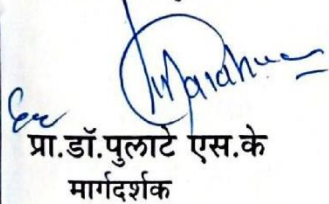 प्रा.डॉ.पुलाटे एस.के
मार्गदर्शक